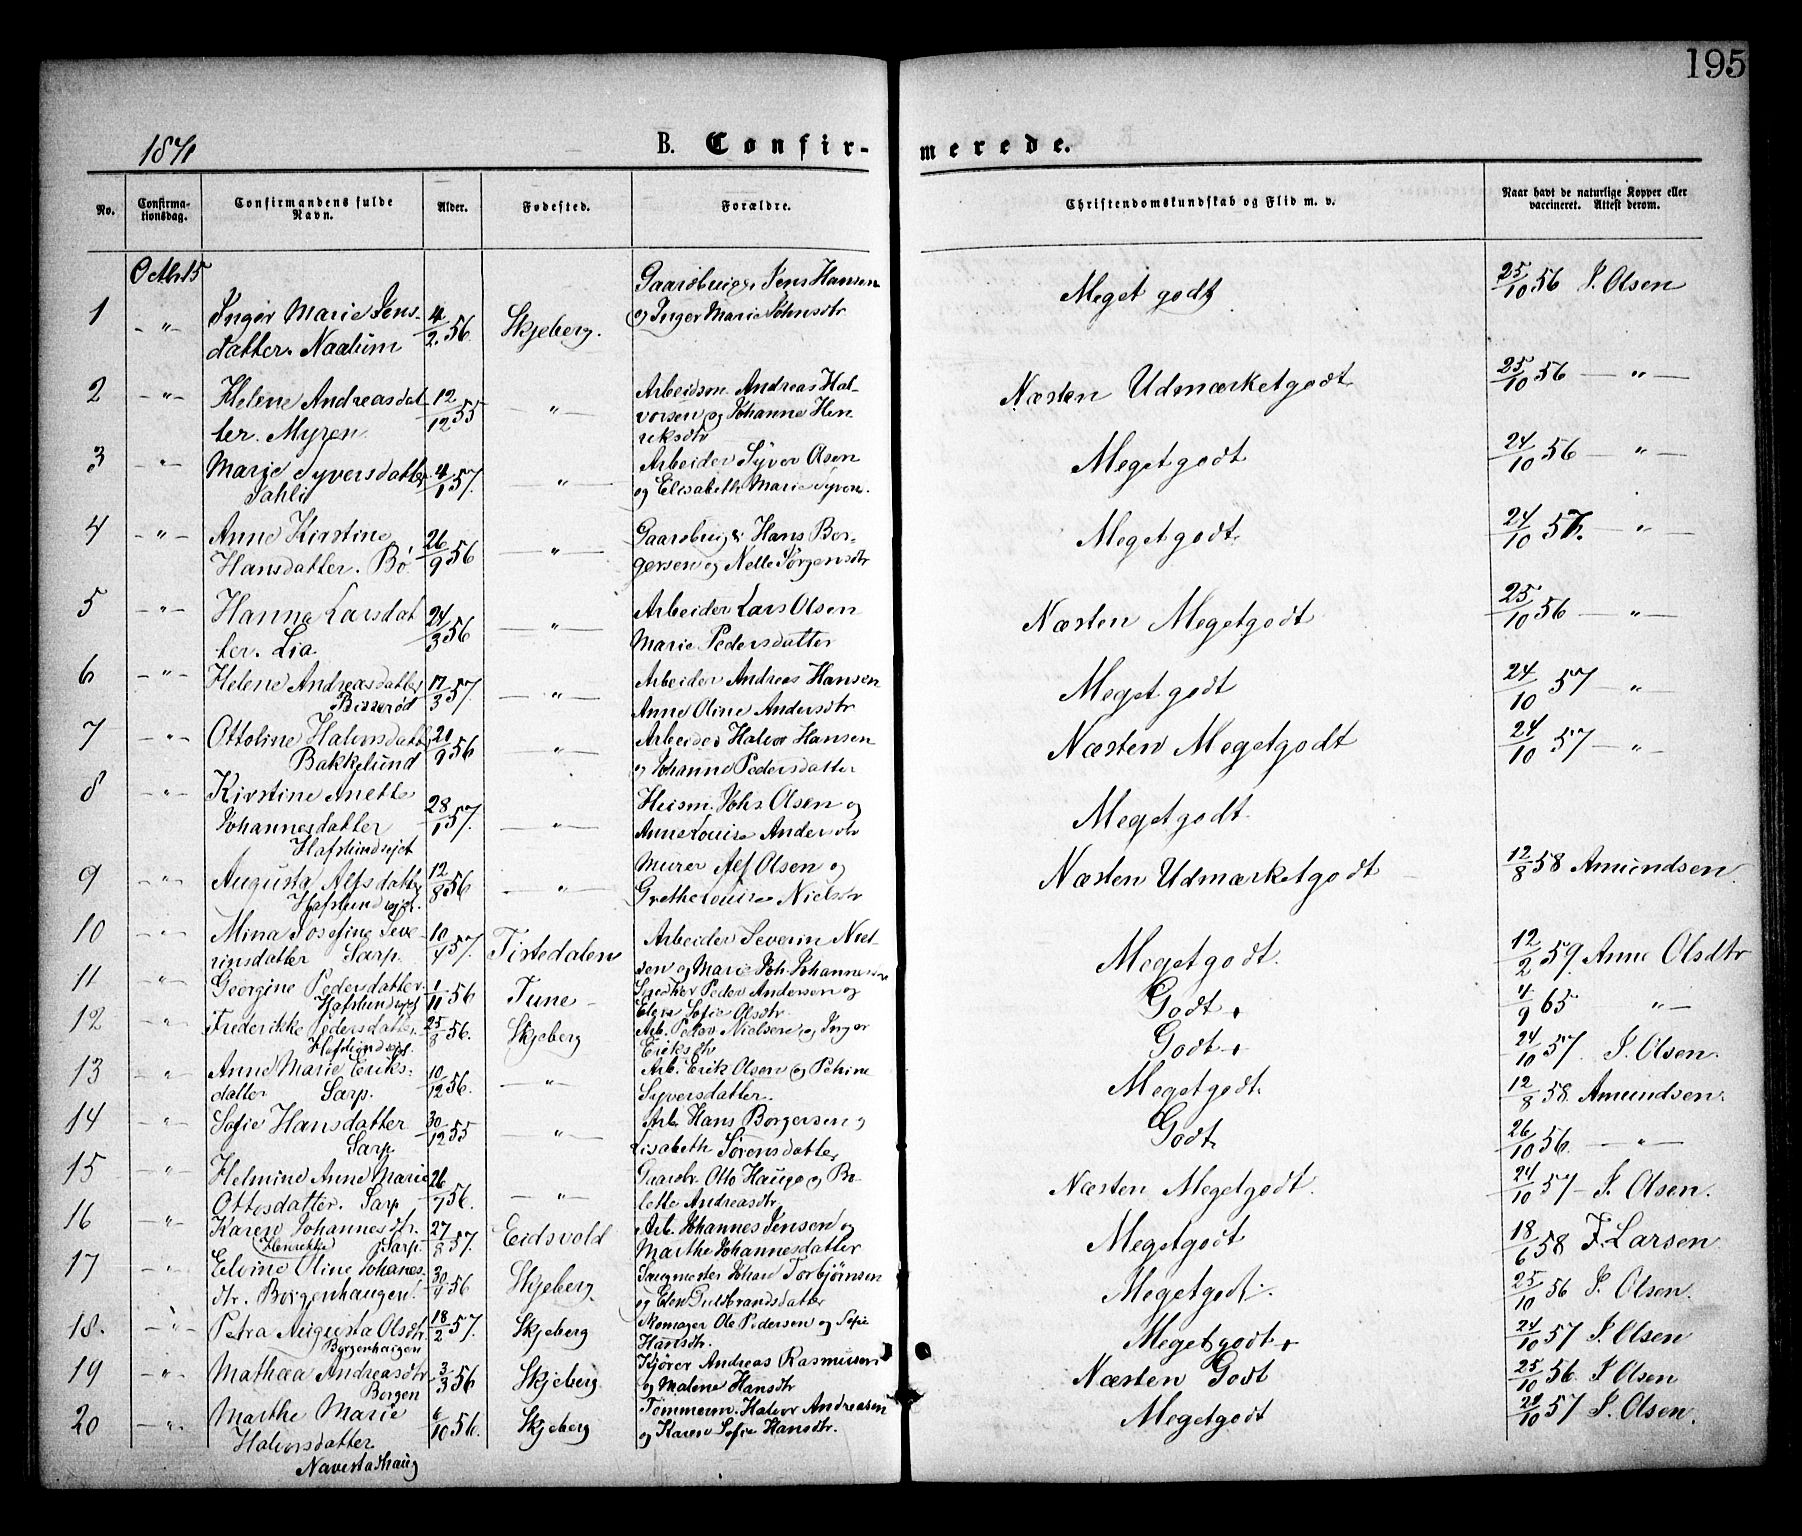 195
1871
B. Confir- merede.
No. Confirma-tionsdag. Confirmandens fulde Navn. Alder. Fødested. Forældre. Christendomskundskab og Flid m. v. Naar havt de naturlige Kopper eller vaccineret. Attest derom.
Octb 15
Gaardbruger Jens Hansen 25/10 56 S. Olsen
1 -"- Inger Marie Jens- 4/2 56 Skjeberg. og Inger Marie Johnsdtr Meget godt
datter. Naalum
2 -"- Helene Andreasdat- 12/12 55 -"- Arbeidsm. Andreas Hal- Næsten Udmærketgodt 25/10 56 -"-
ter. Myren. vorsen og Johanne Hen
riksdtr
3 -"- Marie Syversdatter 4/1 57. -"- Arbeider Syver Olsen Megetgodt 24/10 56 -"-
Dahli og Elisabeth Marie Syvers.
4 -"- Anne Kirstine 26/9 56 -"- Gaardbrug. Hans Bor- Megetgodt. 24/10 57. "
Hansdatter. Bø. gersen og Nelle Jørgensdtr
5 -"- Hanna Larsdat 24/3 56 -"- Arbeider Lars Olsen Næsten Megetgodt 25/10 56 -"-
ter. Lia Marie Pedersdatter
6 -"- Helene Andreasdatter 17/3 57. -"- Arbeider Andreas Hansen Meget godt 24/10 57 -"-
Bisserød Anne Oline Andersdtr
7 -"- Ottoline Halvorsdatter 21/9 56 -"- Arbeider Halvor Hansen Næsten Megetgodt 24/10 57 -"-
Bakkelund og Johanne Pedersdatter
8 -"- Kirstine Anette 28/1 57. -"- Huism. Johs Olsen og Megetgodt.
Johannesdatter Anne Louise Andersdtr
Hafslundvejet
9 -"- Augusta Alfsdatter 12/8 56 -"- Murer Alf Olsen og Næsten Udmærketgodt 12/8 58 Amundsen.
Hafslundvejet. Grethe Louise Nielsdtr
10 -"- Mina Josefine Seve- 10/4 57. Tistedalen Arbeider Severin Niel- Megetgodt. 12/2 59. Anne Olsdtr
rinsdatter Sarp. sen og Marie Joh. Johannesdtr
11 " Georgine Pedersdatter. 1/11 56 Tune - Peder Andersen og Godt. 4/9 65 "-
Hafslundvejet Sofie Olsdtr.
12 " Frederikke Pedersdatter. 25/8 56. Skjeberg Arb. Peder Nielsen og Inger Godt. 24/10 57. S. Olsen.
Hafslundvejet. Eriksdtr
13 " Anne Marie Eriks- 10/12 56. -"- Arb. Erik Olsen og Petrine Megetgodt. 12/8 58. Amundsen.
datter Sarp. Syversdatter.
14 " Sofie Hansdatter 30/12 55 -"- Arb. Hans Borgersen og Godt. 26/10 56. -"-
Sarp Lisabeth Sørensdatter
15 -"- Helmine Anne Marie 26/7 56. -"- Gaardbr. Otto Haug og Bo- Næsten Megetgodt. 24/10 57- S. Olsen.
Ottesdatter. Sarp lette Andreasdtr
16 -"- Karen Johannesdtr. 27/8 57. Eidsvold Arb. Johannes Jensen og Megetgodt 18/6 58 F. Larsen
(Henrikke) Sarp. Marthe Johannesdatter
17 " Elvine Oline Johanes- 30/4 56 Skjeberg. Saugmester Johan Torbjørnsen Megetgodt. 25/10 56 S. Olsen.
dtr. Borgenhaugen. og Elen Guldbrandsdatter
18. -"- Petra Augusta Olsdtr 18/2 57. Skjeberg Skomager Ole Pedersen og Sofie Megetgodt. 24/10 57 S. Olsen
Borgenhaugen Hansdtr.
19 -"- Mathæa Andreasdtr 3/3 56 Skjeberg Kjører Andreas Rasmusen Næsten Godt 25/10 56. S. Olsen
Borgen og Malene Hansdtr
20 -"- Marthe Marie 6/10 56. Skjeberg Tømmerm. Halvor Andreasen Megetgodt 20/10 57 S. Olsen.
Halvorsdatter og Karen Sofie Hansdtr.
Navestadhaug